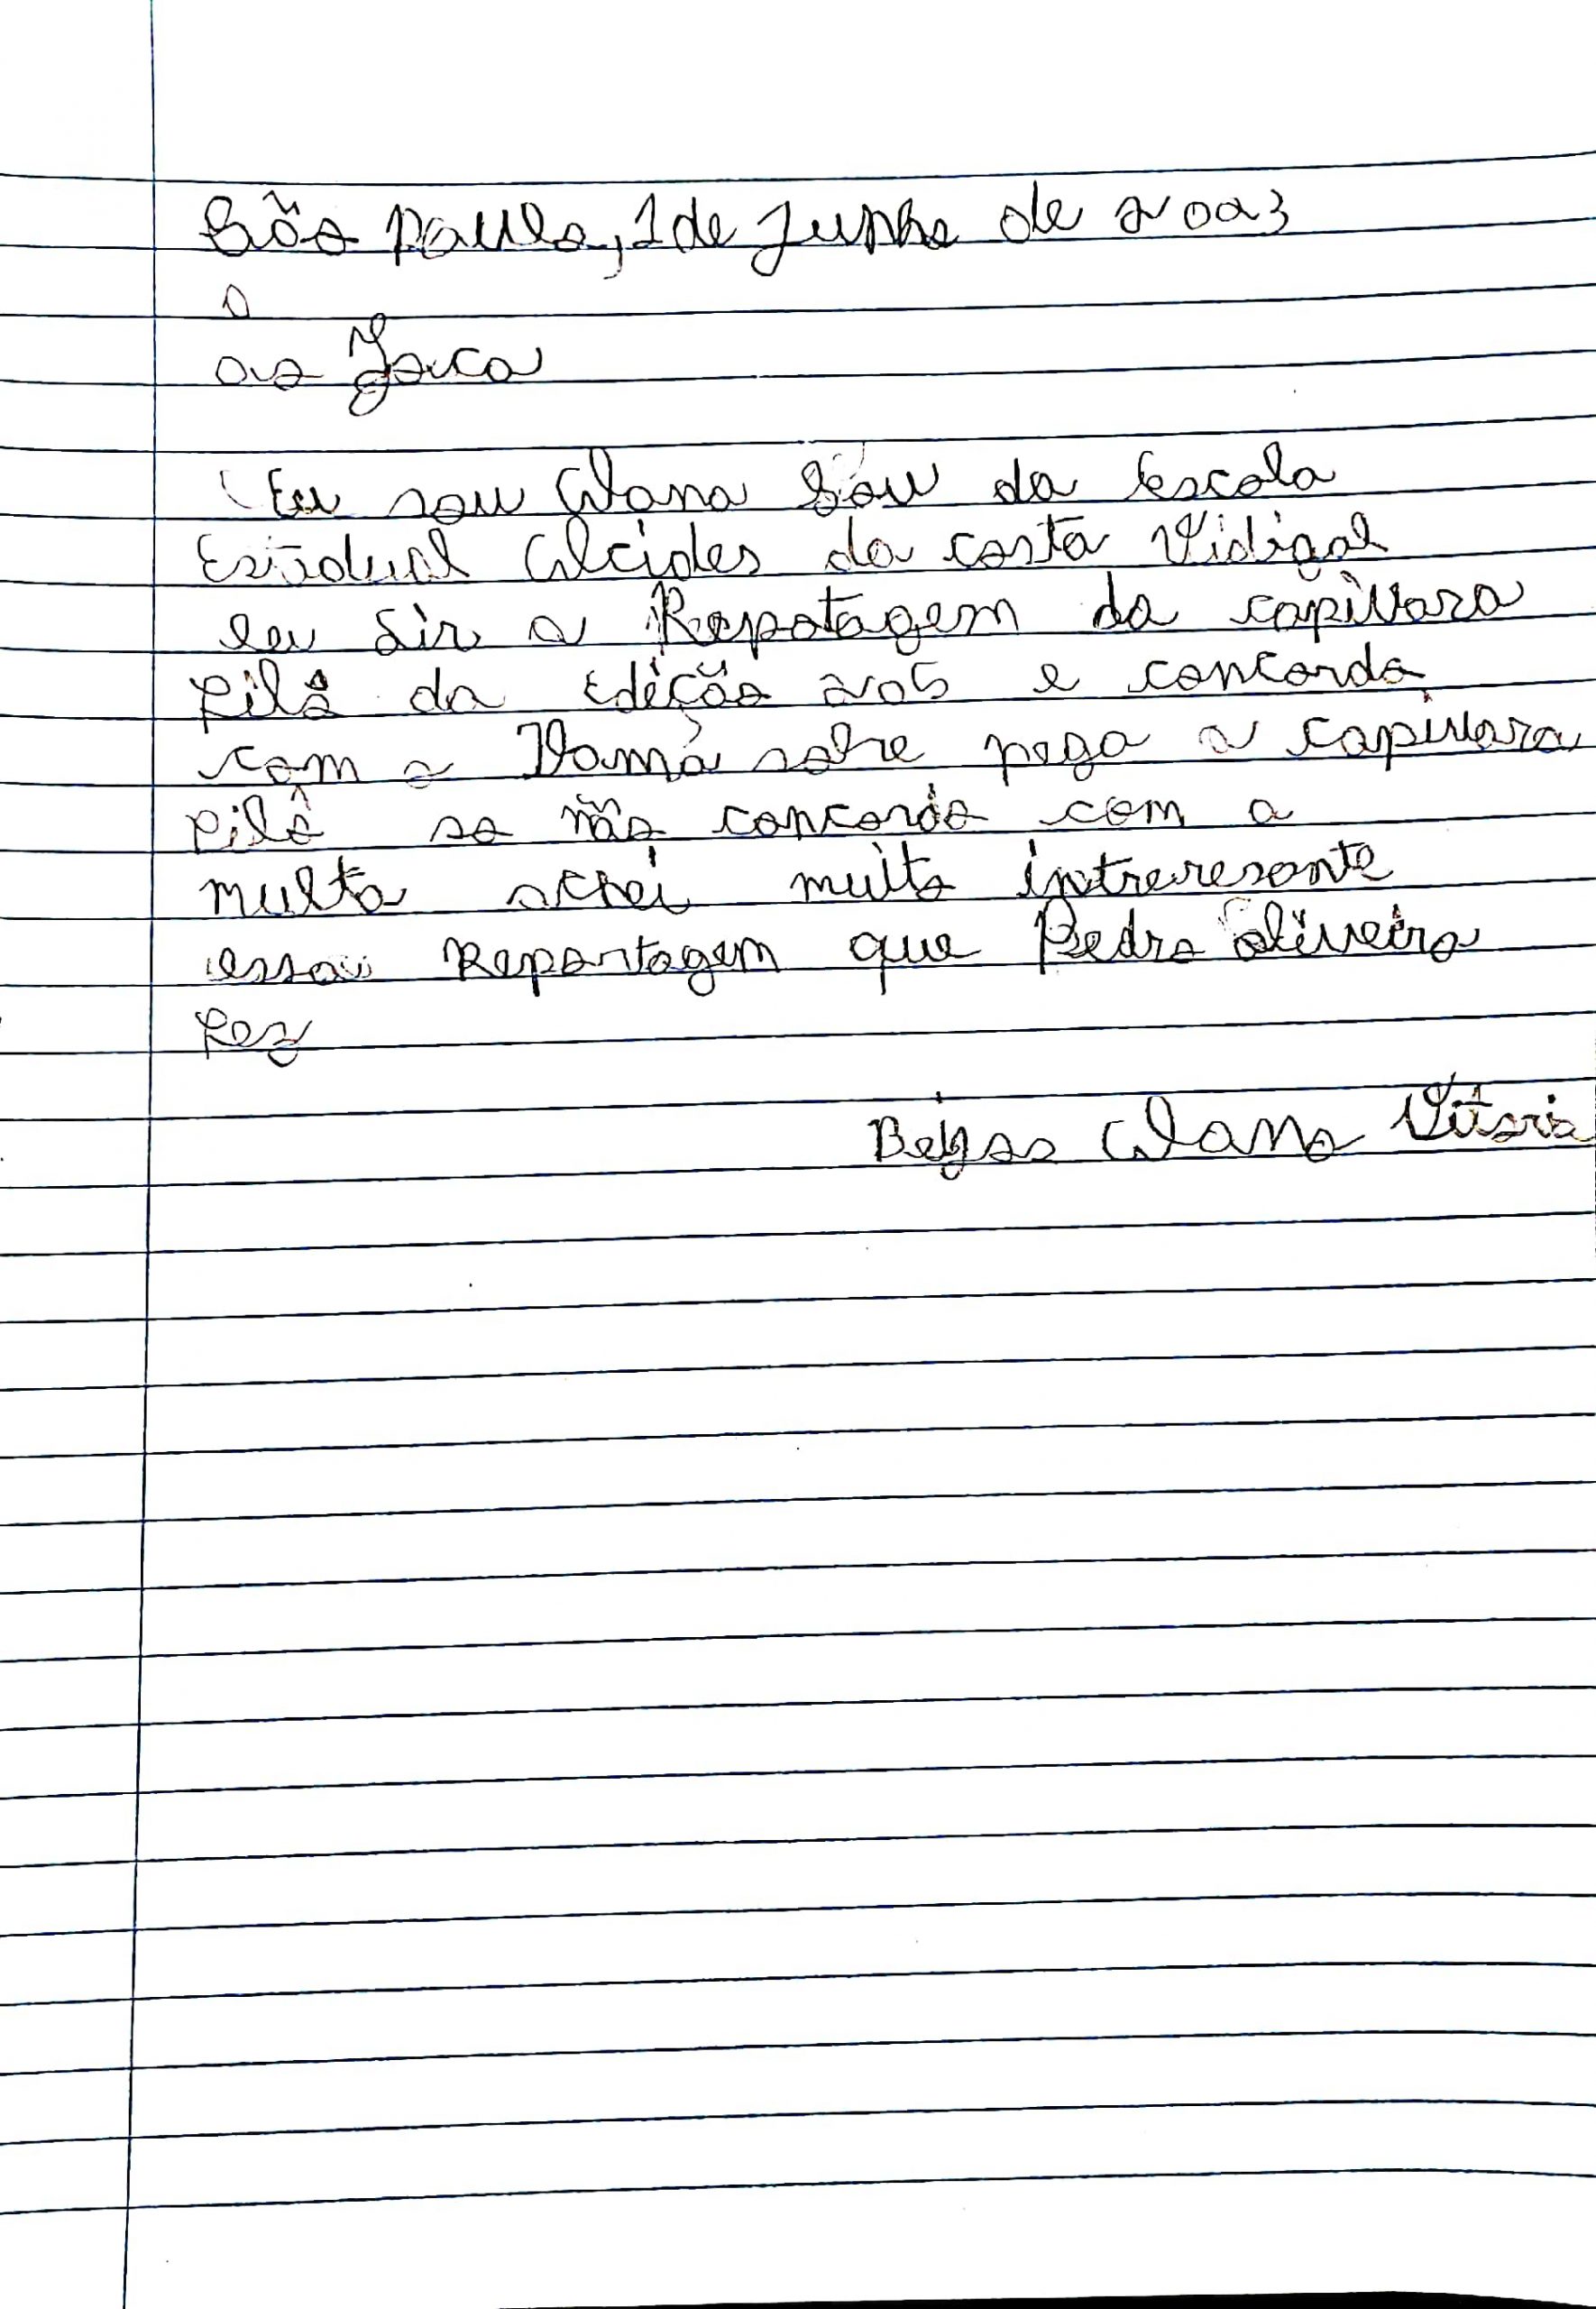 São Paulo, 1 de Junho de 2003
ao Joca
Eu sou Alana Sou da Escola
Estadual Alcides da costa Vidigal
eu Li a Repotagem da capivara
Filô da Edição 205 e concordo
com o Ibama sobre pega a capivara
Filô so não concordo com a
multa achei muito intreresante
essa Reportagem que Pedro oliveira
Fez
Beijos Alana Vitoria